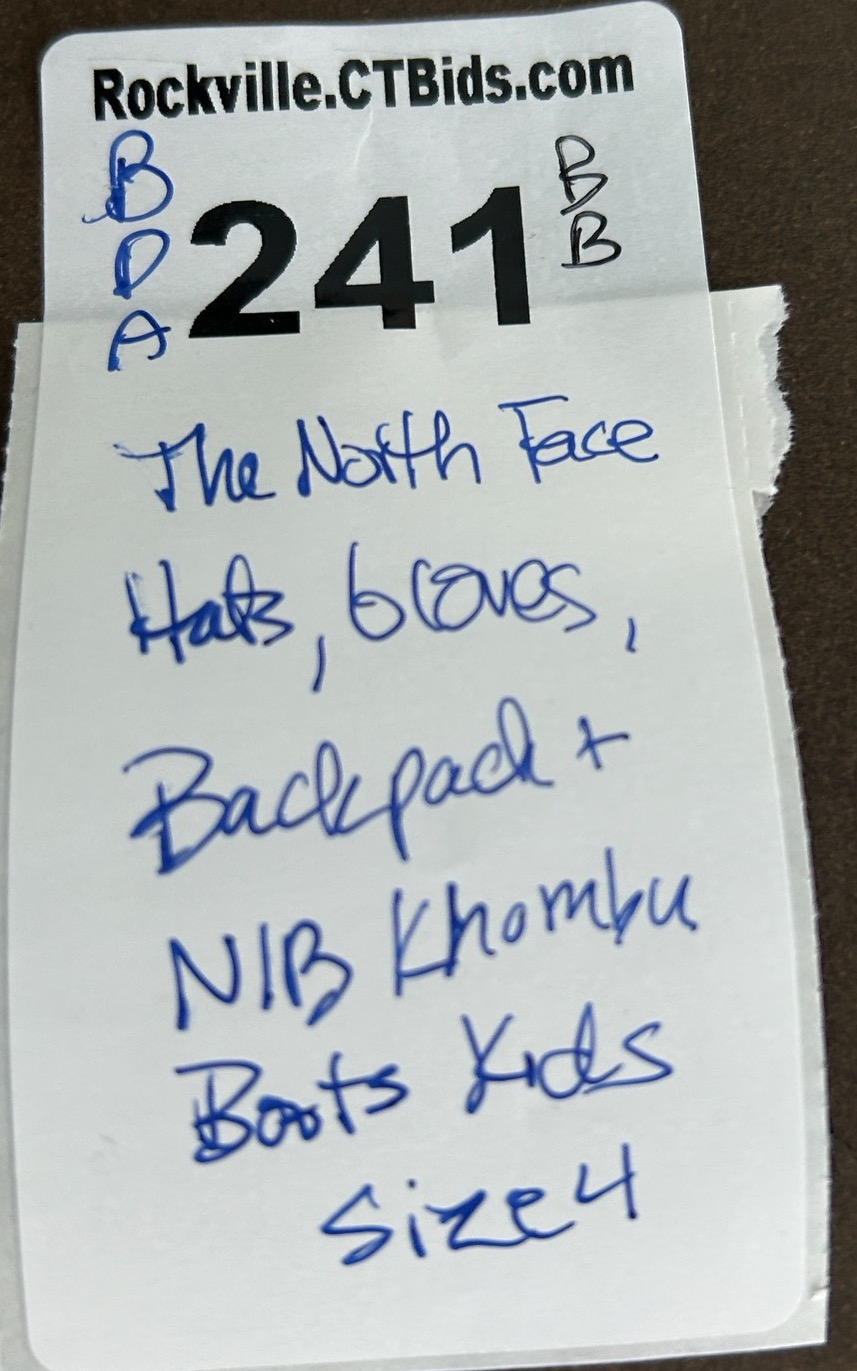 Rockville.CTBids.com
B
D
A
241
B
B
The North Face
Hats, Gloves,
Backpack +
NIB Khombu
Boots Kids
Size 4